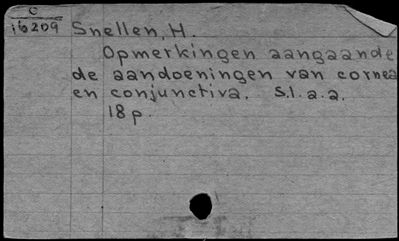 C
16209
Snellen, H.
Opmerkingen aangaande
de aandoeningen van cornea
en conjunctiva. S.l. a.a.
18 p.